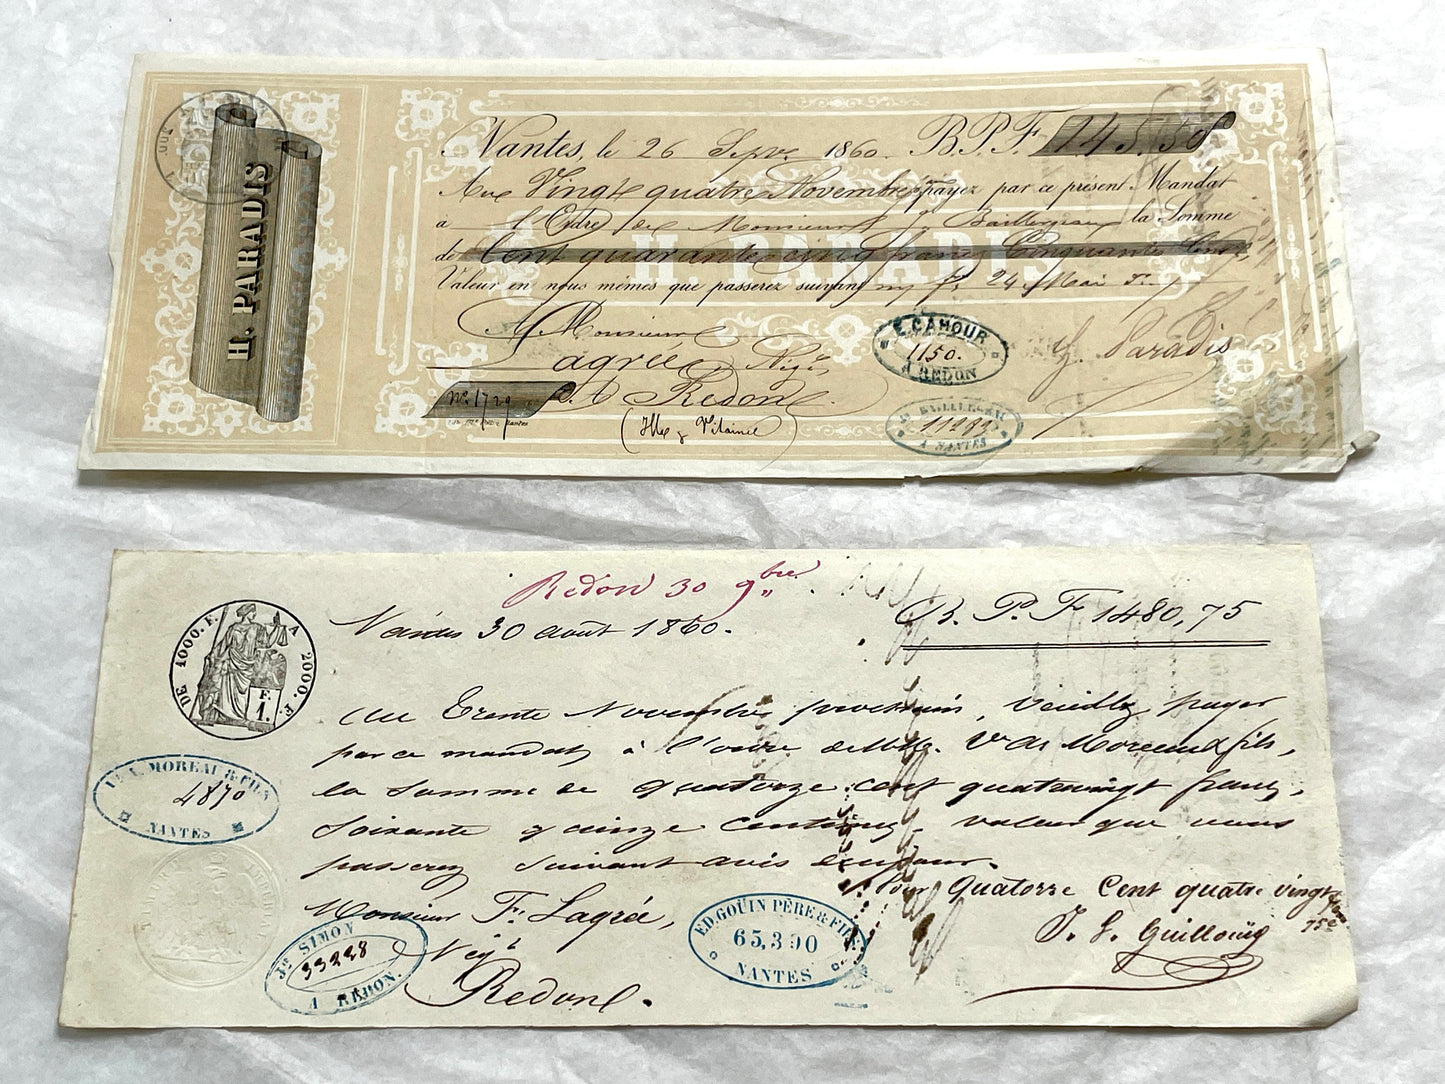 H. PARADIS
Nantes, le 26 Sepbre 1860. B.P.F. 145,50
Au Vingt quatre Novembre payez par ce présent Mandat
à l'Ordre de Monsieur Baillergeau la Somme
de Cent quarante cinq francs Cinquante Cent,
H. PARADIS
Valeur en nous mêmes que passerez suivant 24 Mai
Monsieur
Lagrée, Nègt,
No. 1729 à Redon
(Ille & Vilaine)
E. CAHOUR
1150.
A REDON
H. Paradis
BAILLERGEAU
A NANTES
Redon 30 9bre.
Nantes 30 août 1860. B. P. F 1480,75
DE 1000. F. A 2000. F.
F. 1.
Au Trente Novembre prochain, veuillez payer
par ce mandat, à l'ordre de Vve A. Moreau & fils,
la somme de quatorze cent quatrevingt francs,
soixante quinze centimes, valeur que vous
passerez suivant avis
Vve A. MOREAU & FILS
4870
NANTES
Pour Quatorze Cent quatre vingt
75c
Monsieur F. Lagrée,
Négt
Redon.
Jn SIMON
33228
A REDON.
ED. GOÜIN PÈRE & FILS
65,390
NANTES